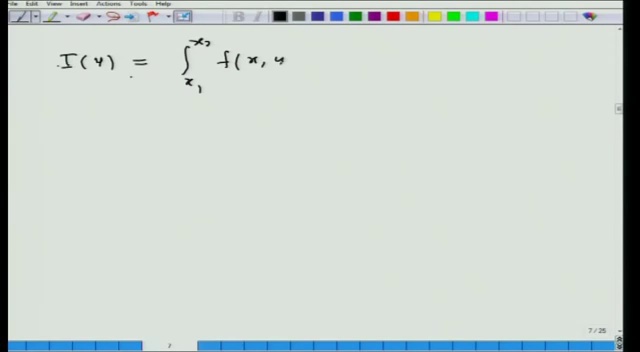 File Edit View Insert Actions Tools Help
I(y) = ∫_{x₁}^{x₂} f(x, y
7 / 25
7